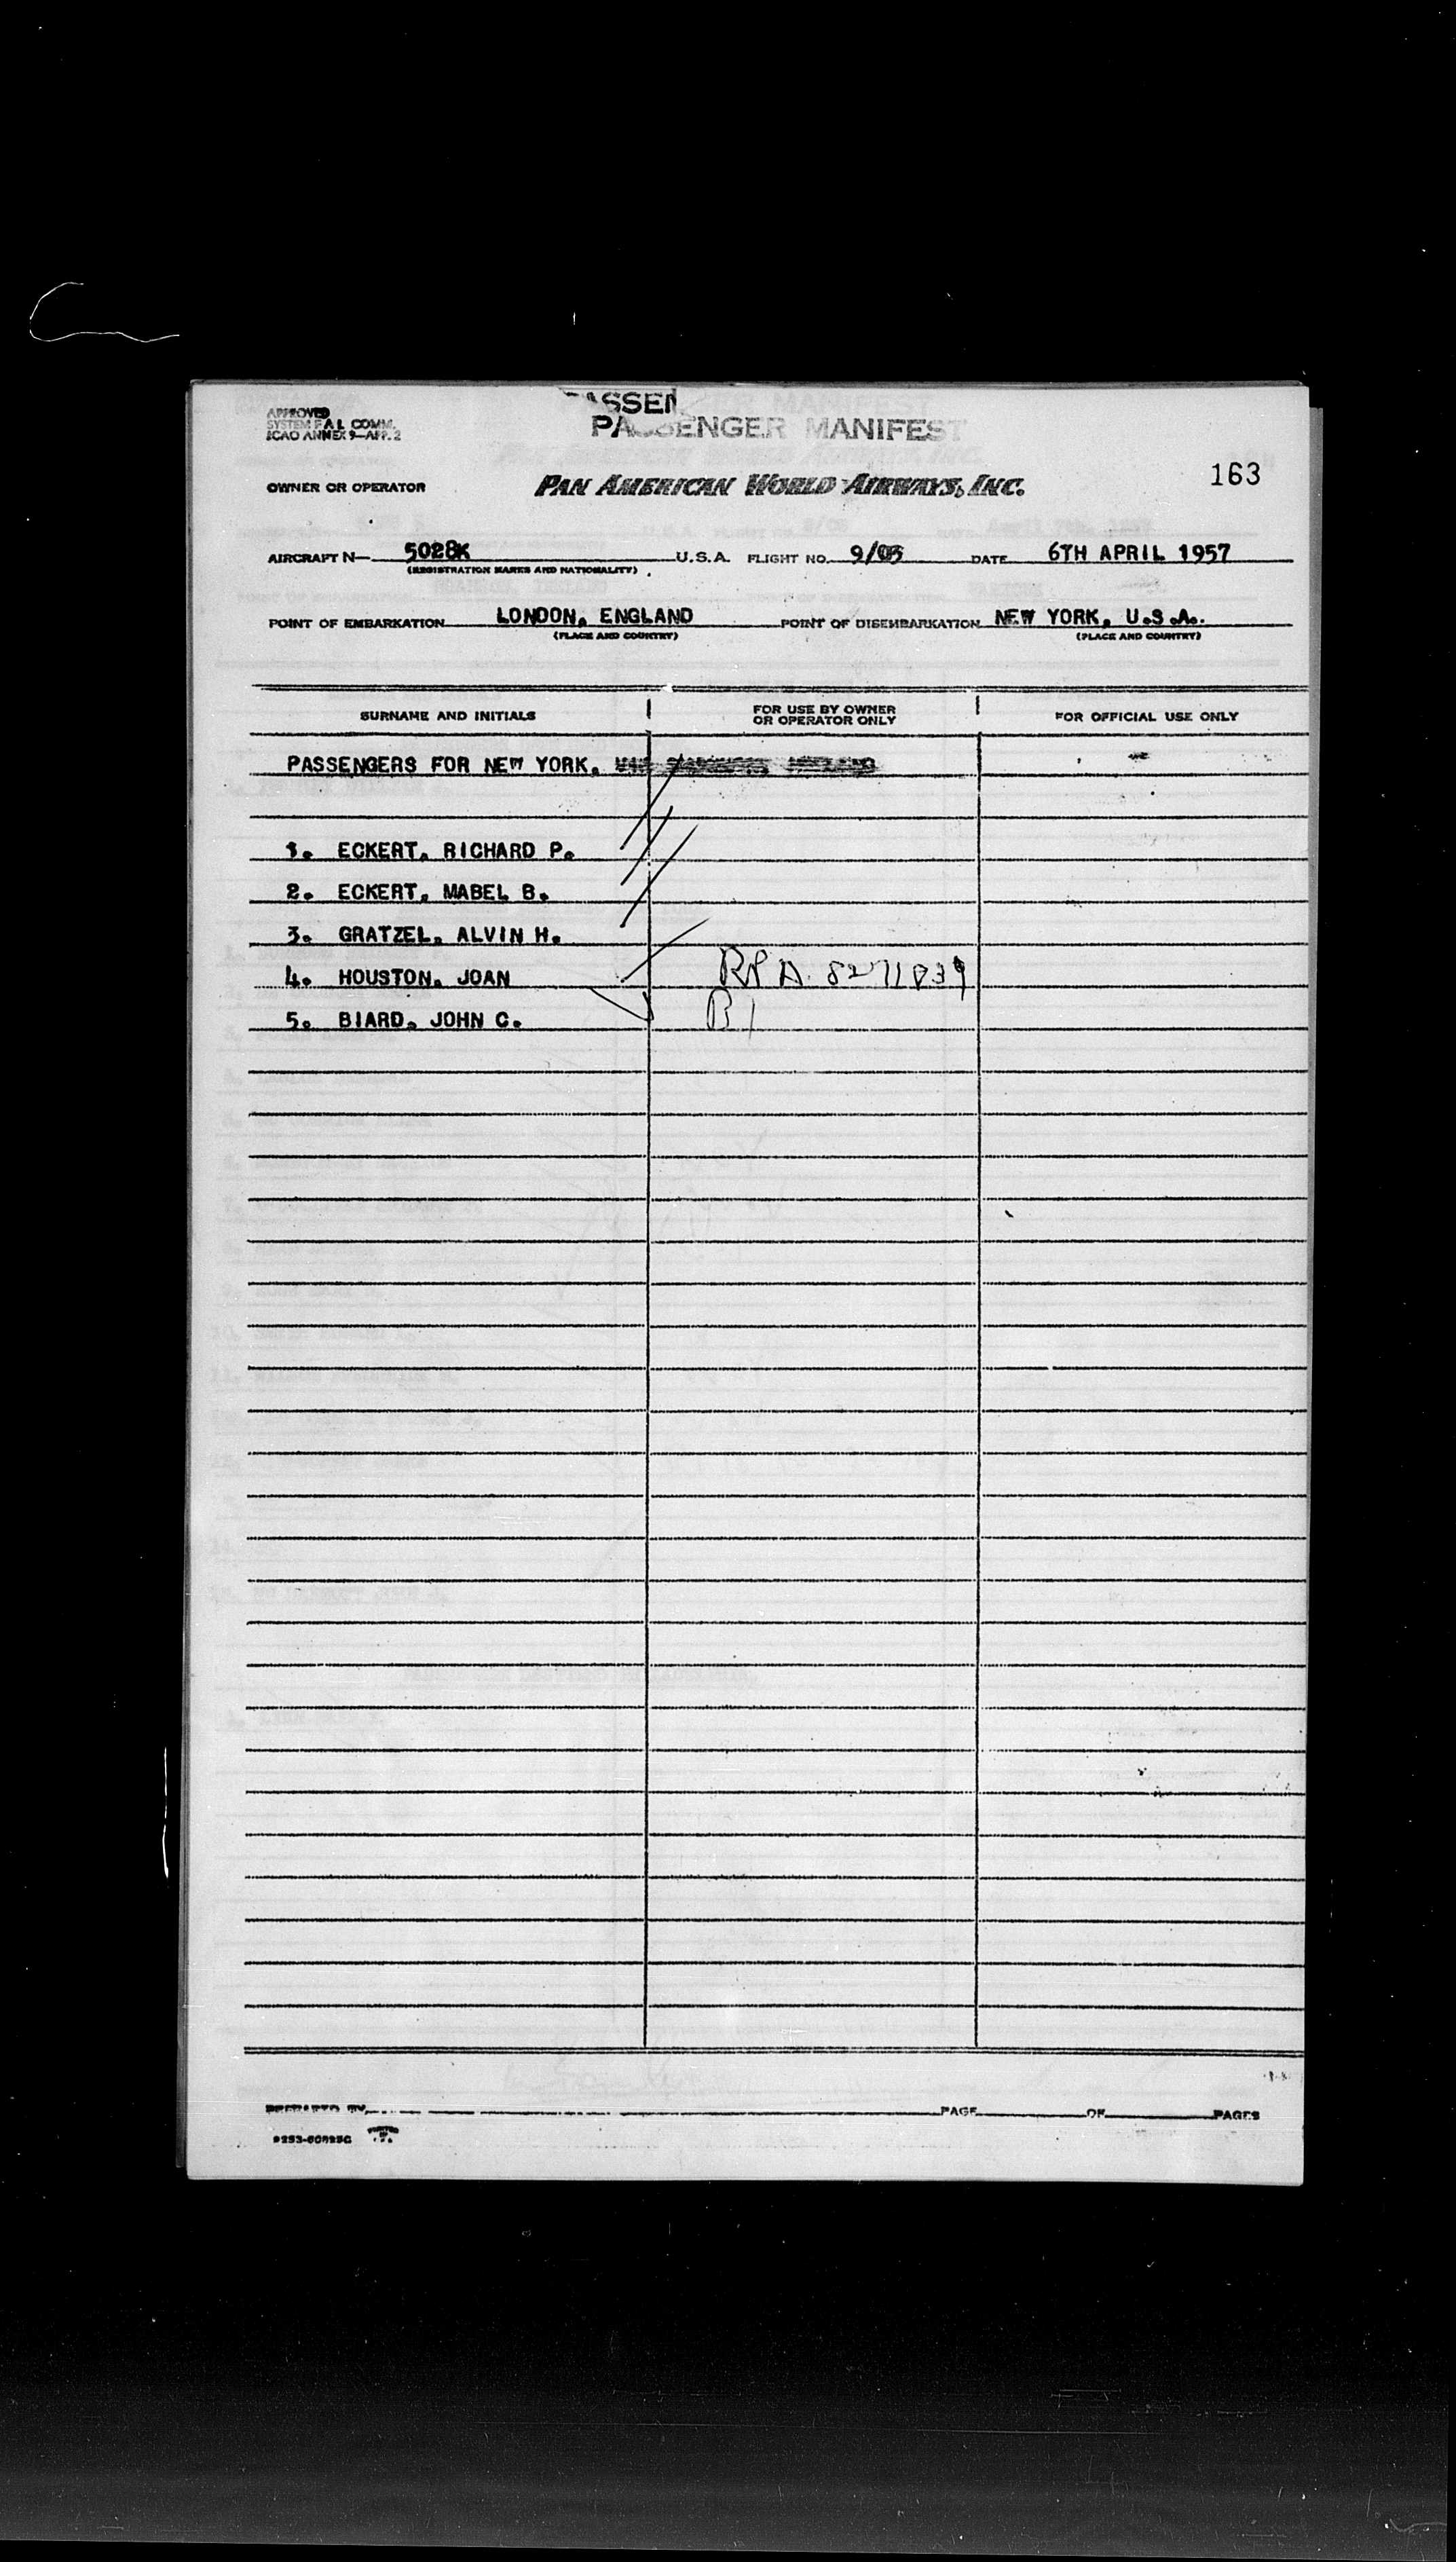 PASSEN
PASSENGER MANIFEST
APPROVED
SYSTEM F A L COMM.
ICAO ANNEX 9—APP. 2
OWNER OR OPERATOR PAN AMERICAN WORLD AIRWAYS, INC. 163
AIRCRAFT N— 5028K U.S.A. FLIGHT NO. 9/05 DATE 6TH APRIL 1957
(REGISTRATION MARKS AND NATIONALITY)
POINT OF EMBARKATION LONDON, ENGLAND POINT OF DISEMBARKATION NEW YORK, U.S.A.
(PLACE AND COUNTRY) (PLACE AND COUNTRY)
SURNAME AND INITIALS FOR USE BY OWNER OR OPERATOR ONLY FOR OFFICIAL USE ONLY
PASSENGERS FOR NEW YORK,
1. ECKERT, RICHARD P.
2. ECKERT, MABEL B.
3. GRATZEL, ALVIN H.
4. HOUSTON, JOAN
5. BIARD, JOHN C. B1
PREPARED BY PAGE OF PAGES